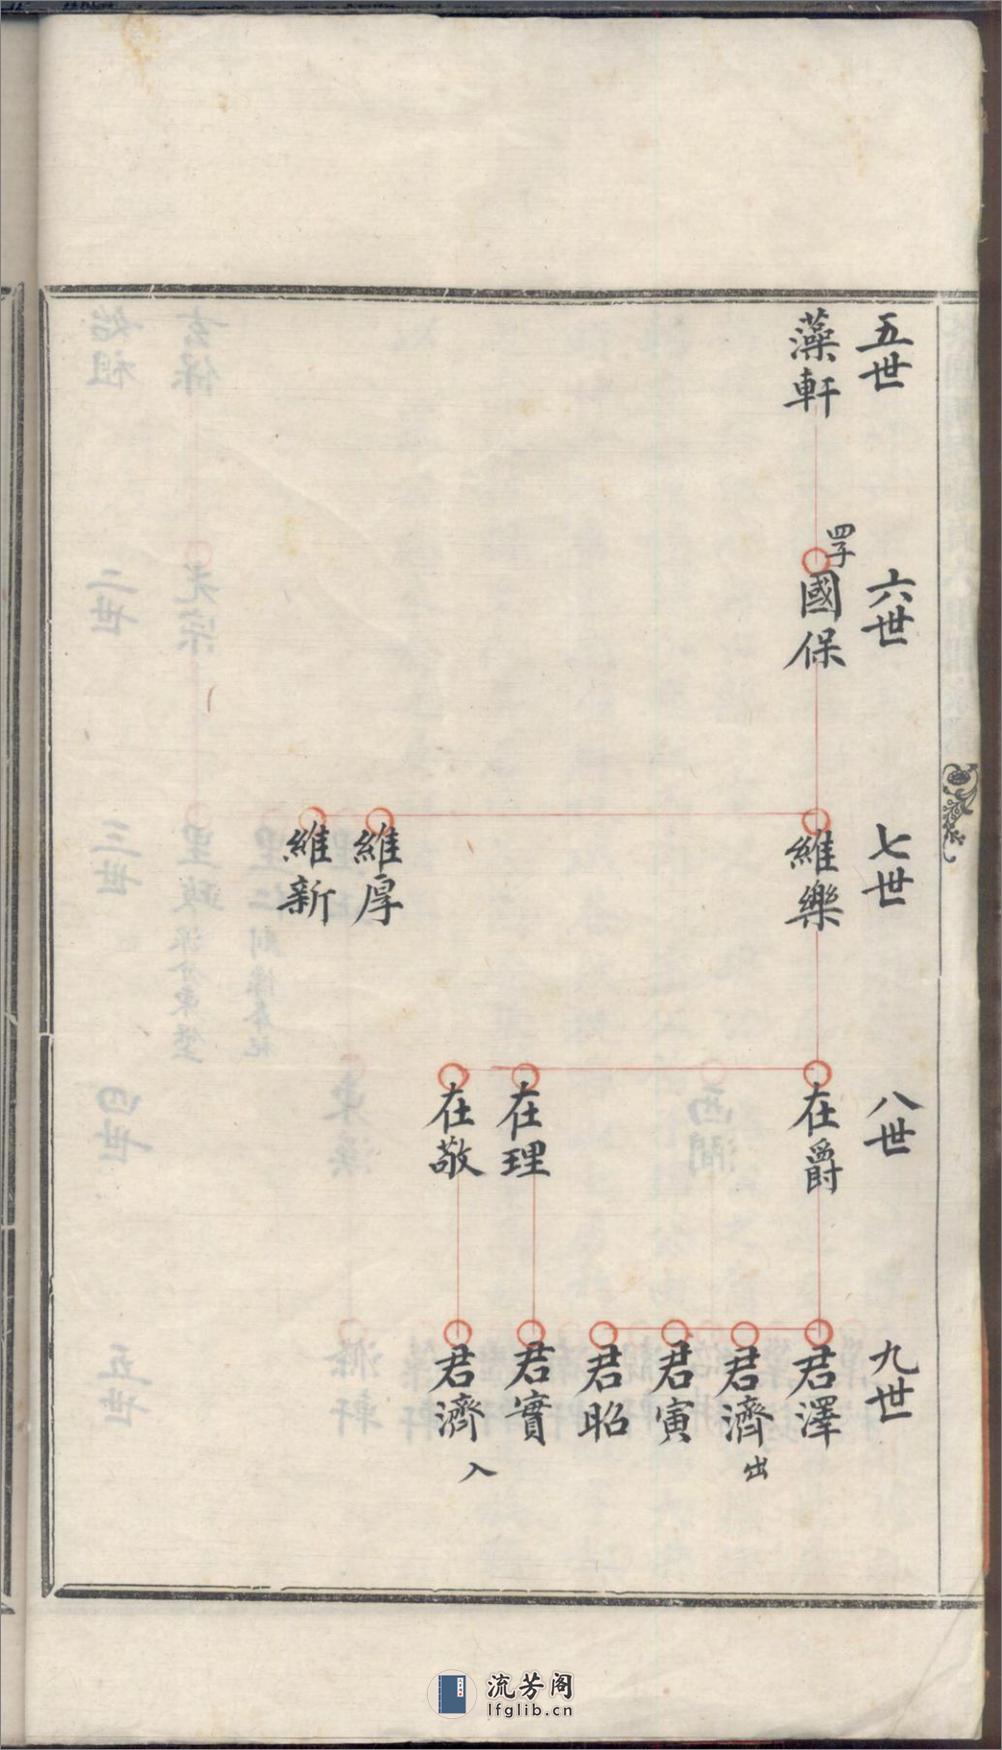 五世
藻軒
六世
四子
國保
七世
維樂
維厚
維新
八世
在爵
在理
在敬
九世
君澤
君濟出
君寅
君昭
君實
君濟入
流芳阁
lfglib.cn